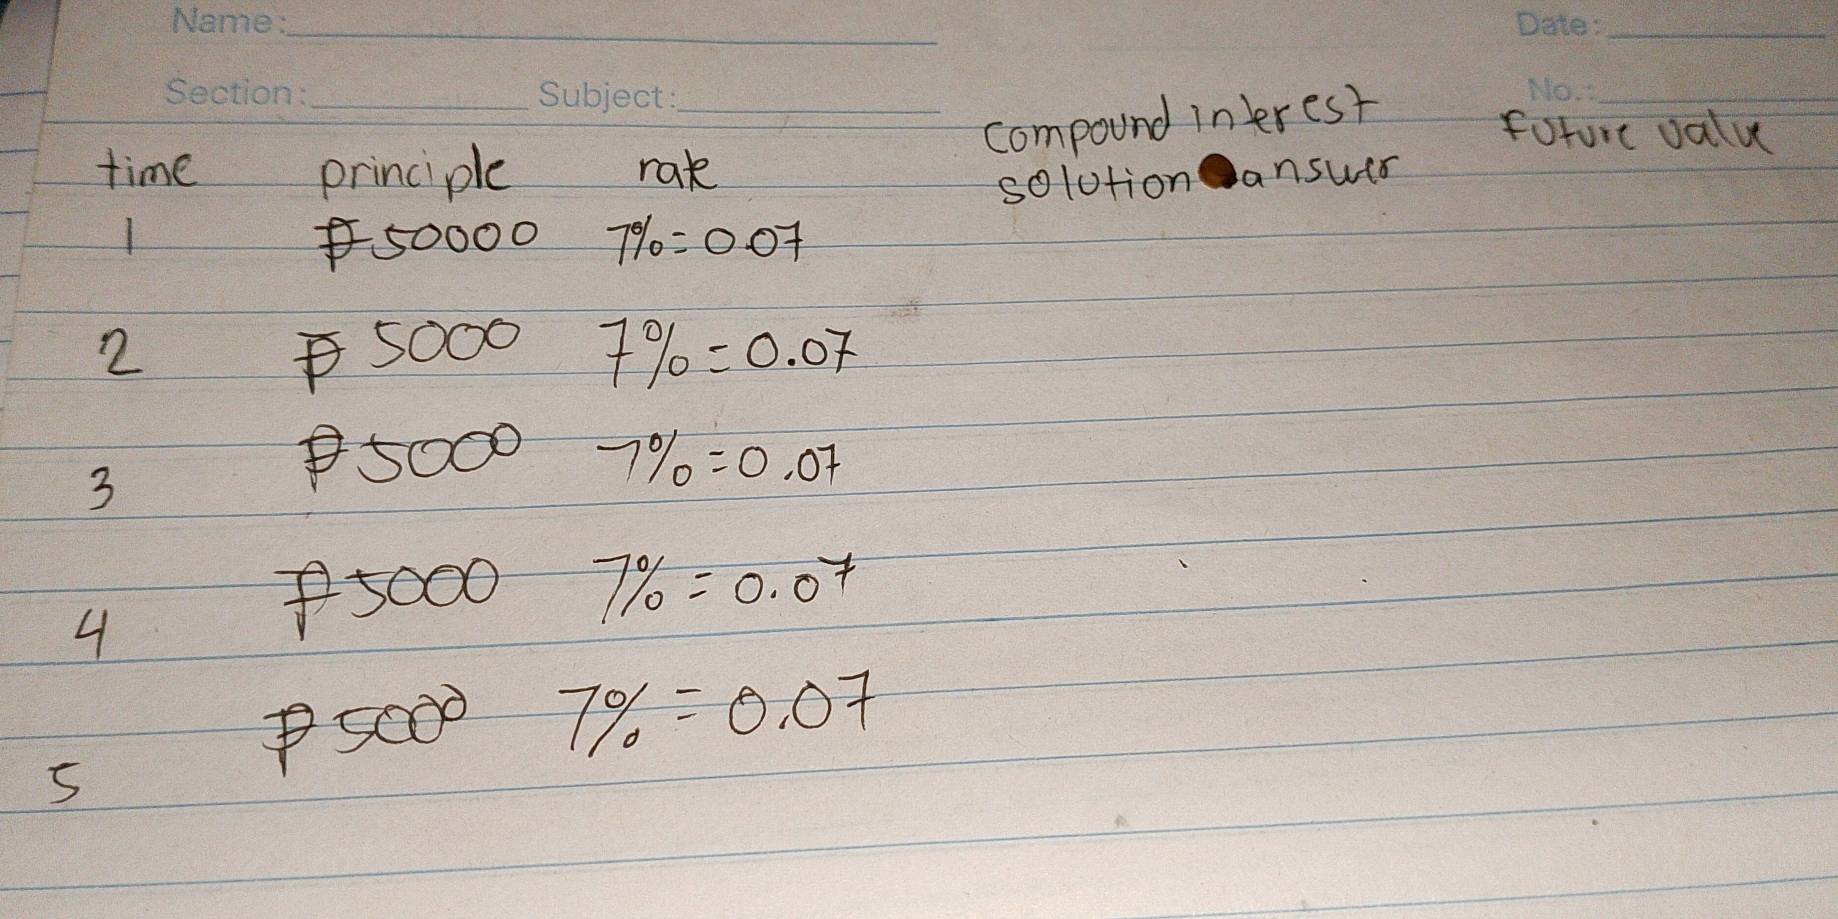 Name: Date:
Section: Subject: No.:
compound interest future value
time principle rate solution answer
1 ₱50000 7%=0.07
2 ₱5000 7%=0.07
3 ₱5000 7%=0.07
4 ₱5000 7%=0.07
5 ₱5000 7%=0.07